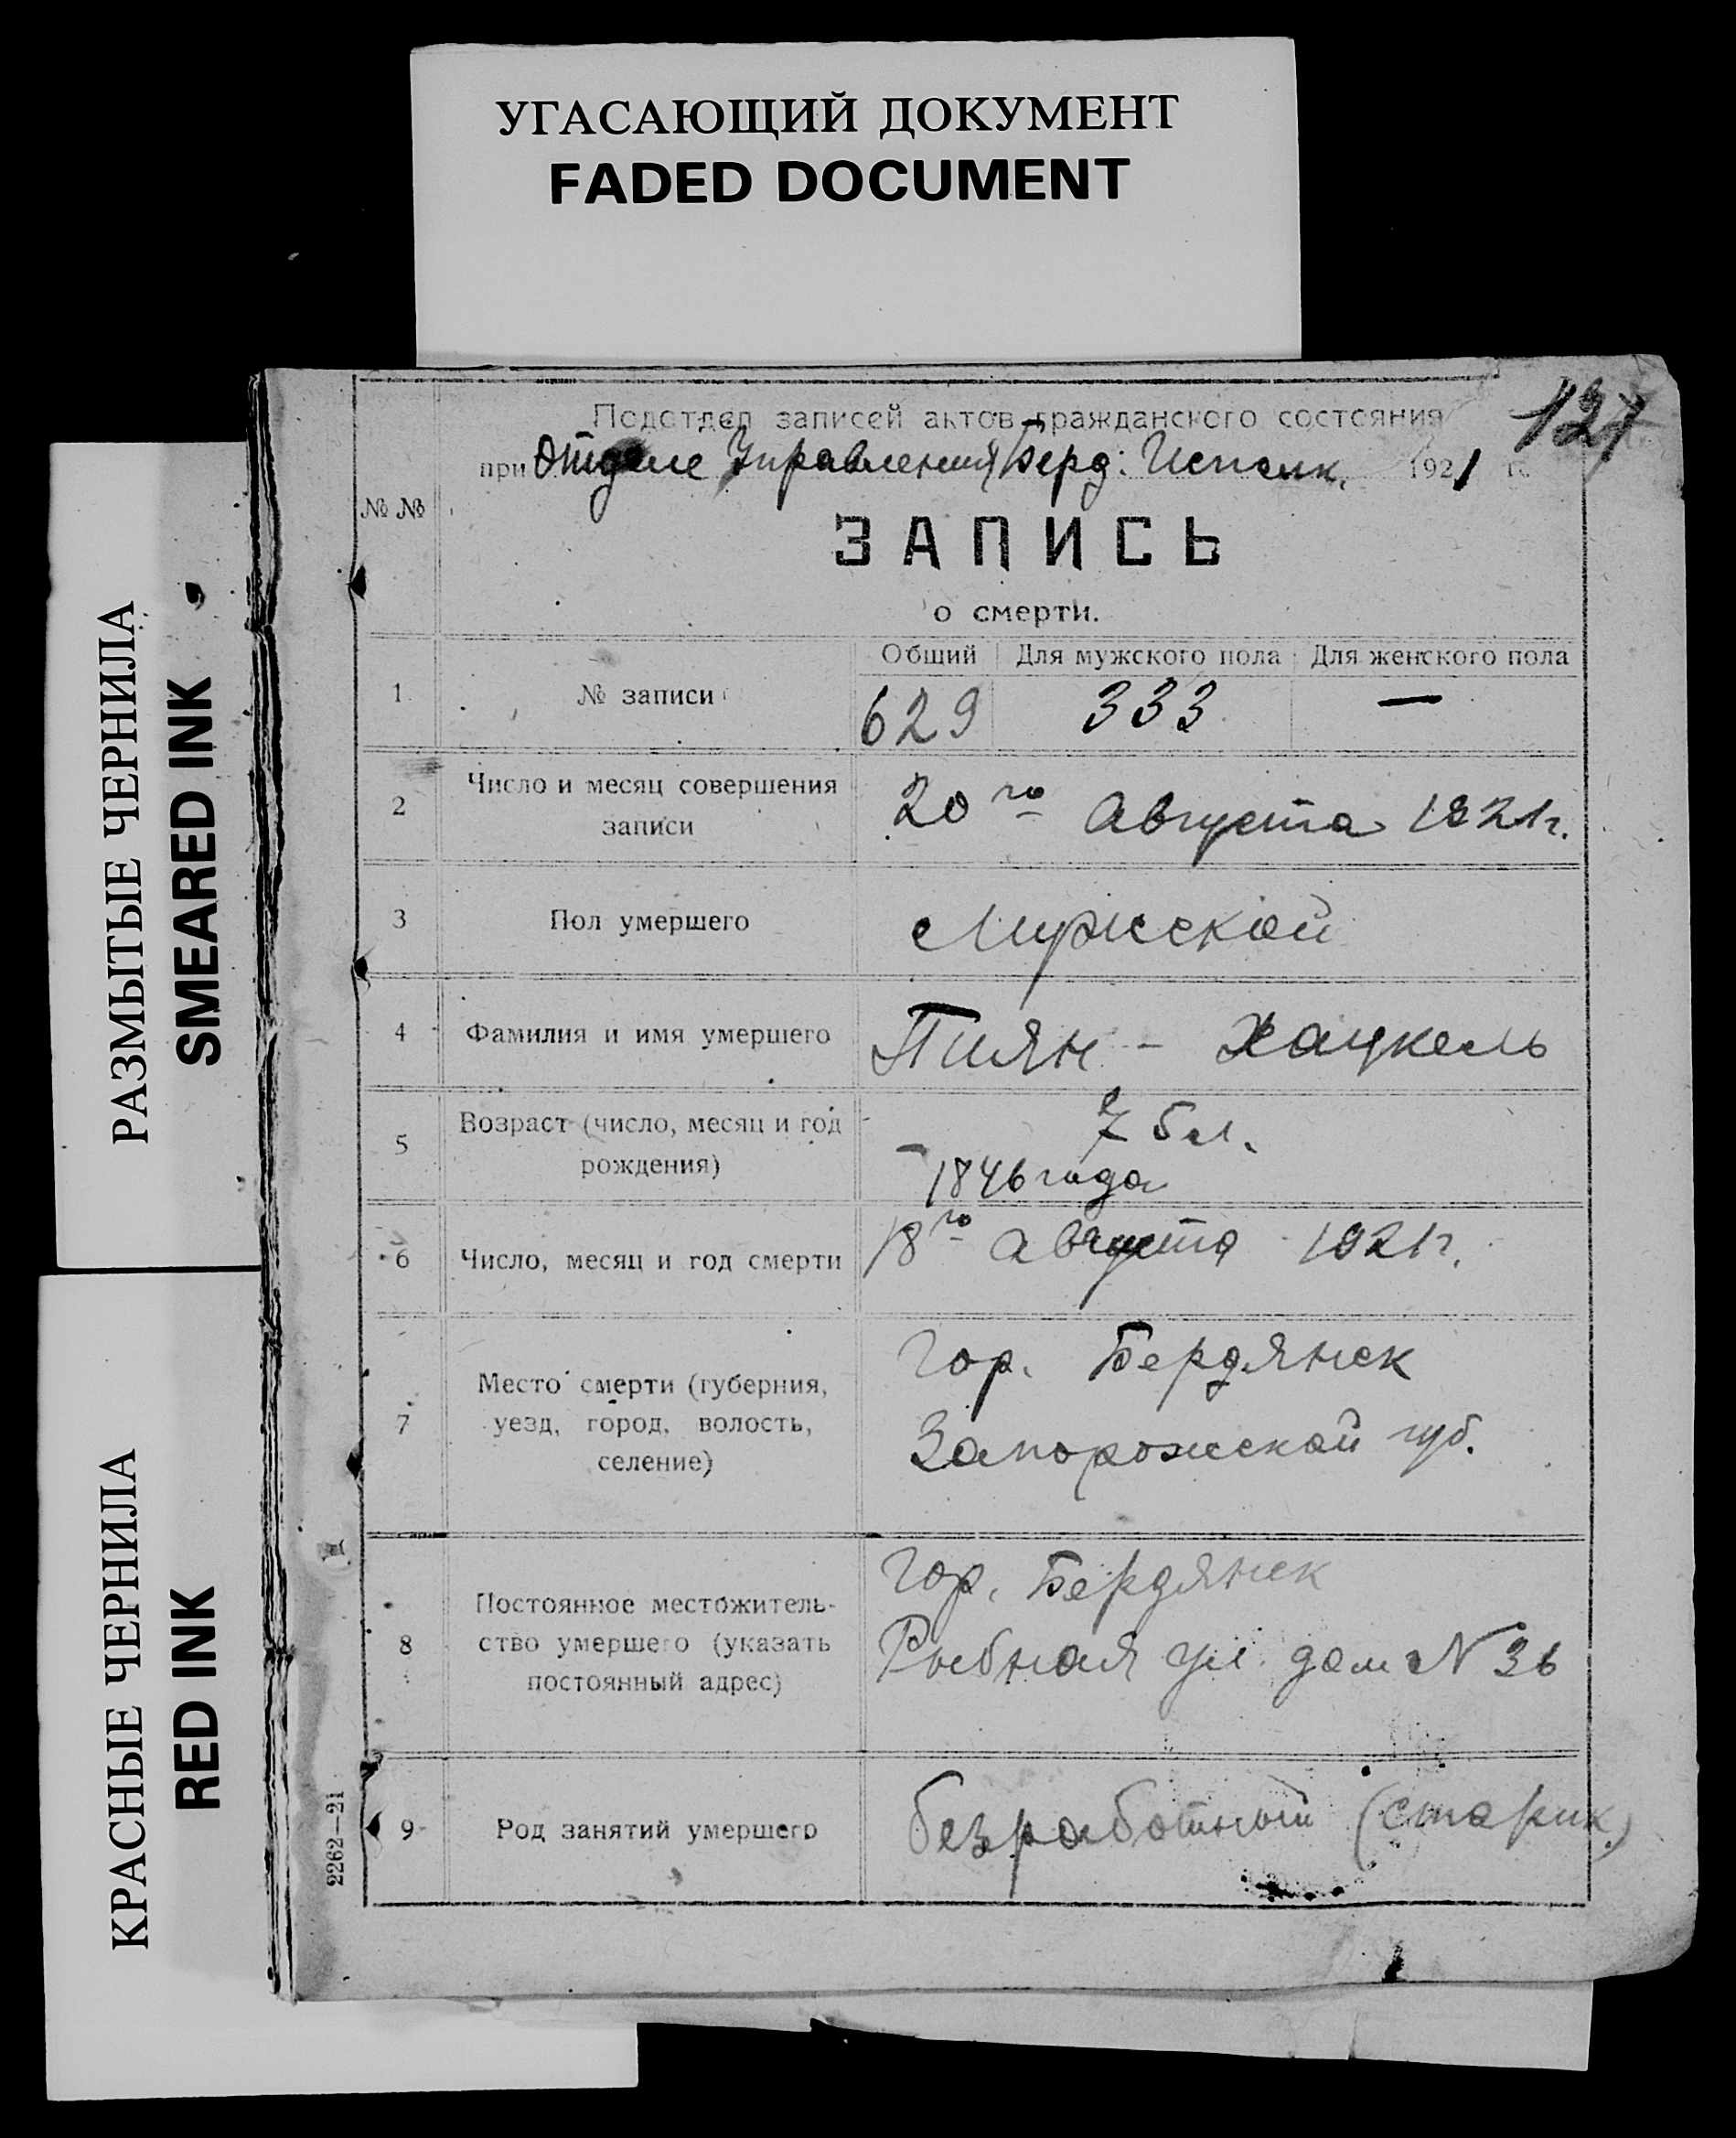 УГАСАЮЩИЙ ДОКУМЕНТ
FADED DOCUMENT
РАЗМЫТЫЕ ЧЕРНИЛА
SMEARED INK
КРАСНЫЕ ЧЕРНИЛА
RED INK
127
Подотдел записей актов гражданского состояния
при Отделе Управления Берд. Исполк. 1921 г.
№ №
ЗАПИСЬ
о смерти.
Общий Для мужского пола Для женского пола
1 № записи 629 333 —
2 Число и месяц совершения
записи
20го Августа 1921г.
3 Пол умершего Мужской
4 Фамилия и имя умершего Пиян - Хацкель
5 Возраст (число, месяц и год
рождения)
75 л.
1846 года
6 Число, месяц и год смерти 18го Августа 1921г.
7 Место смерти (губерния,
уезд, город, волость,
селение)
Гор. Бердянск
Запорожской губ.
8 Постоянное местожитель-
ство умершего (указать
постоянный адрес)
Гор. Бердянск
Рыбная ул. дом № 36
9 Род занятий умершего безработный (старик)
2262—21